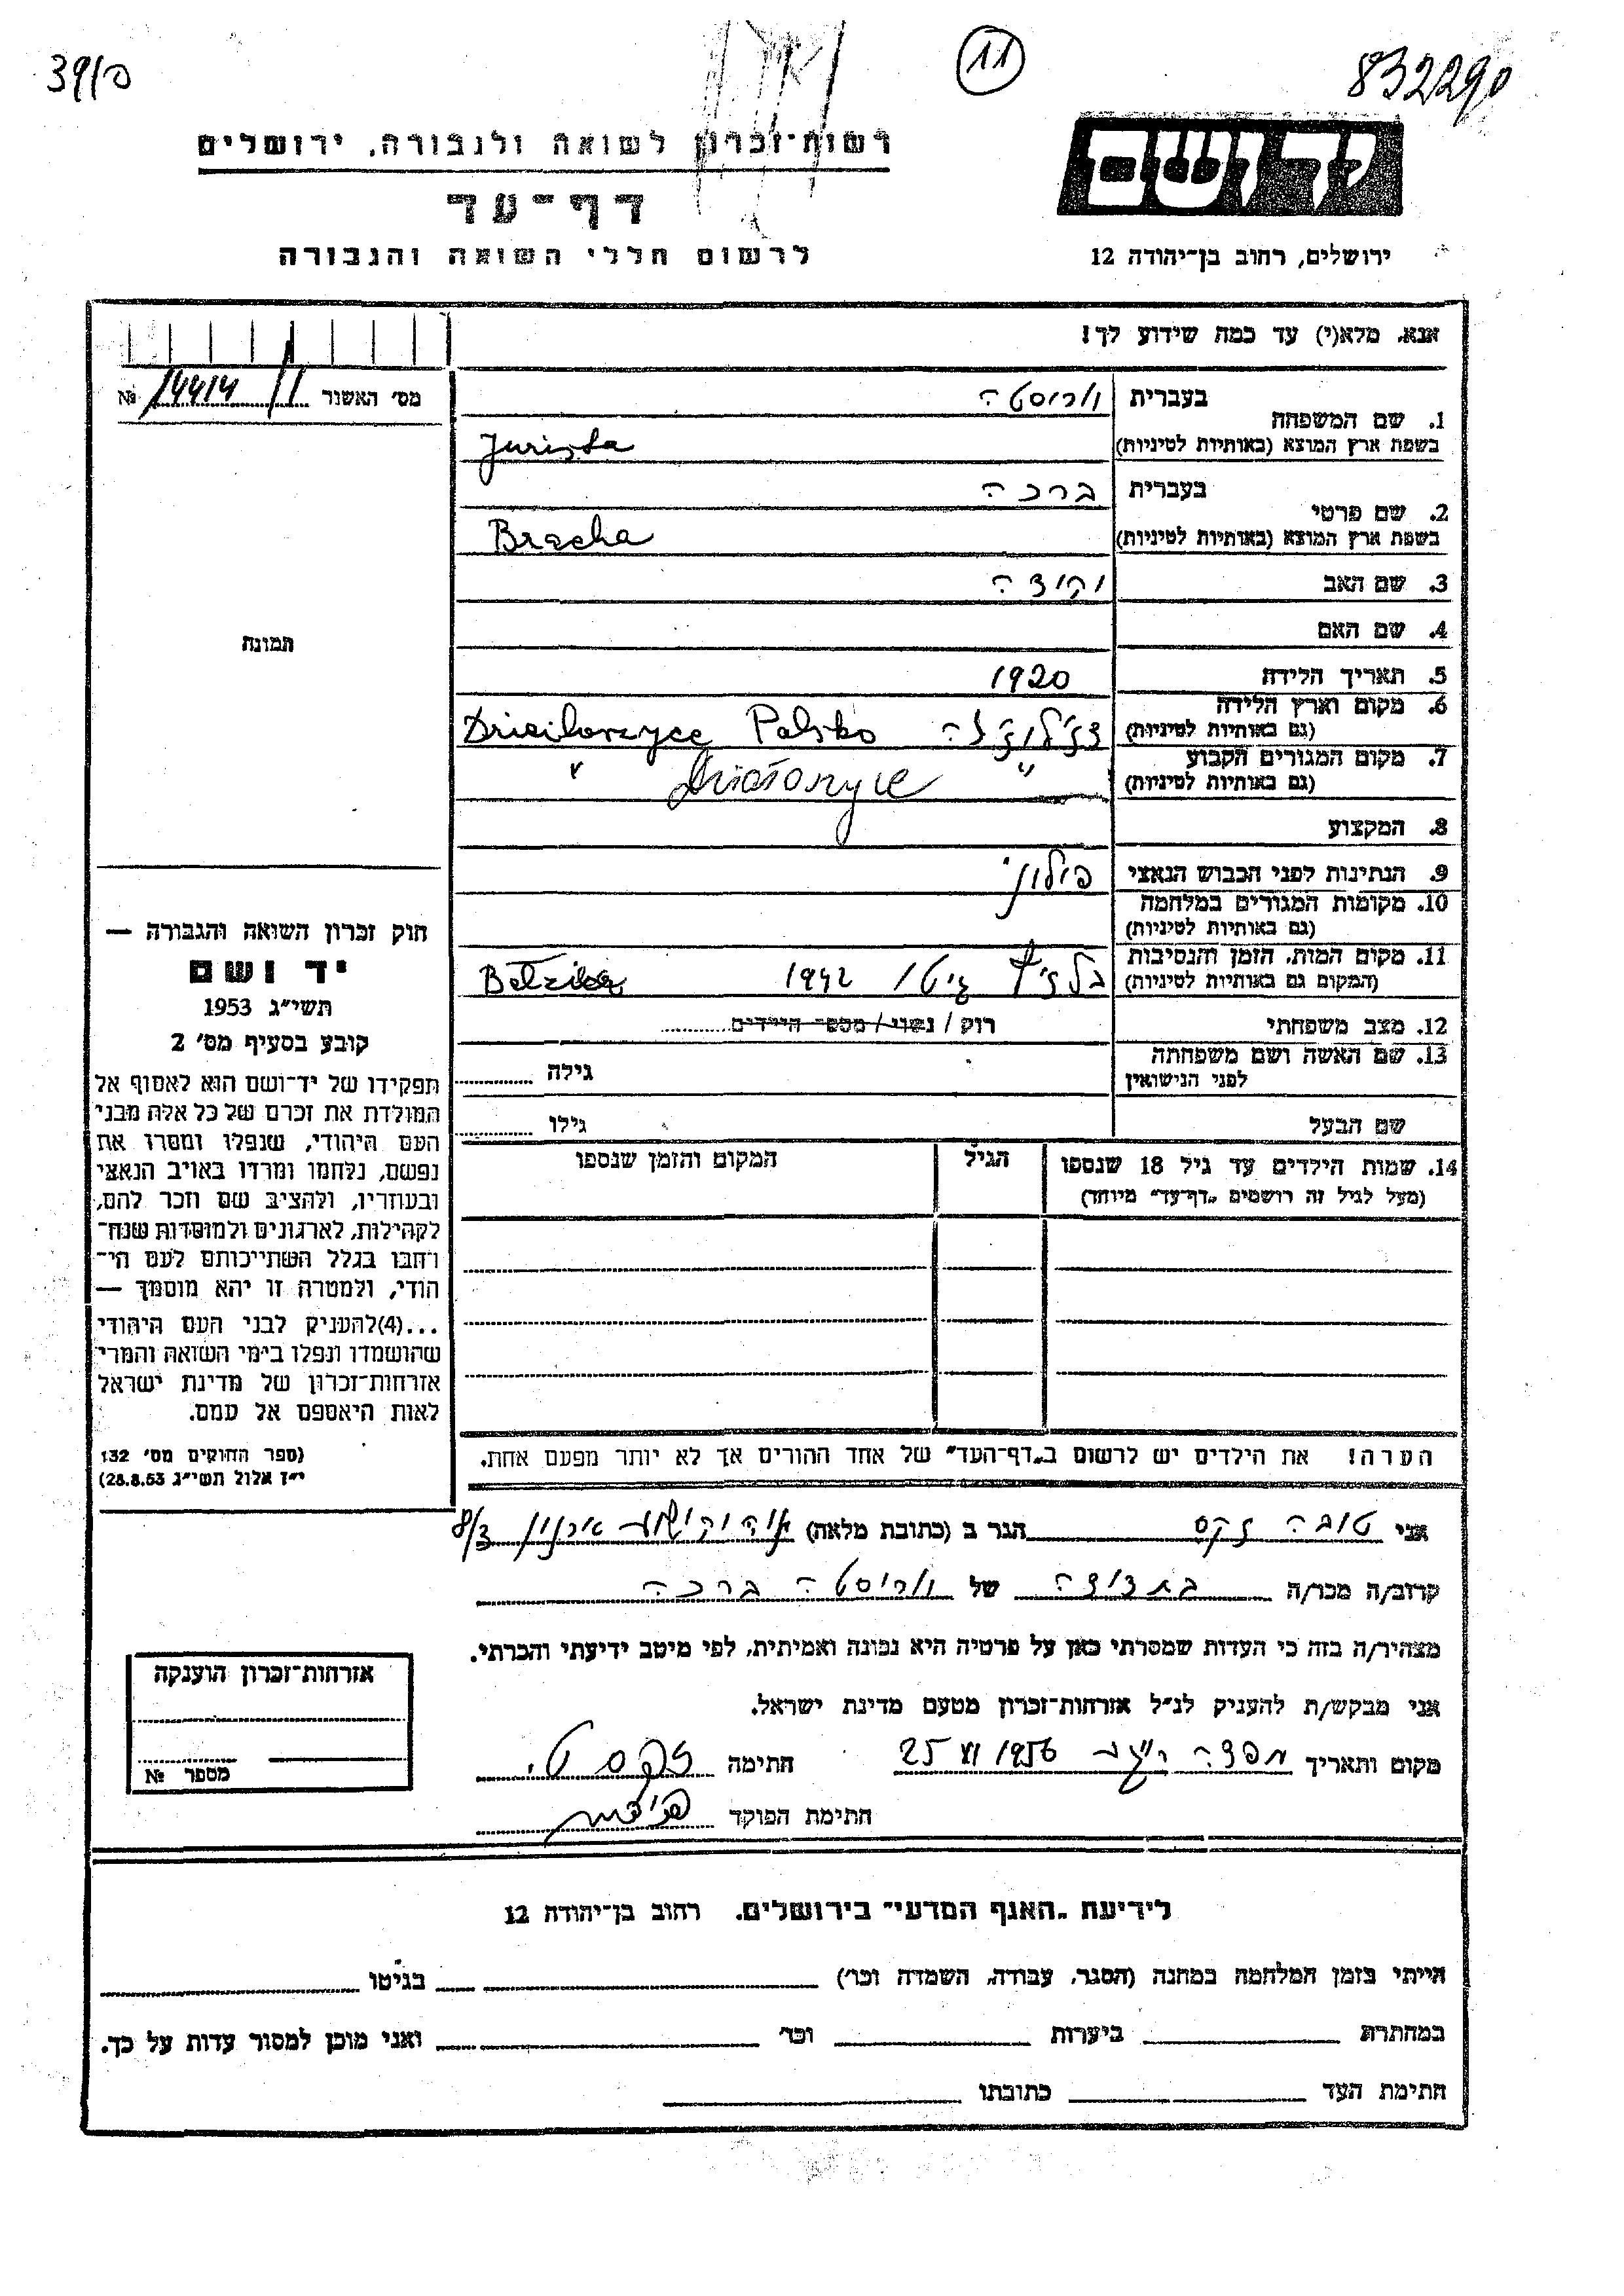 39/פ
11
832290
רשות־זכרון לשואה ולגבורה, ירושלים
דף־עד
לרשום חללי השואה והגבורה
יד ושם
ירושלים, רחוב בן־יהודה 12
אנא, מלא(י) עד כמה שידוע לך!
מס׳ האשור № 14414
1. שם המשפחה
בעברית
יוריסטה
בשפת ארץ המוצא (באותיות לטיניות)
Jurista
2. שם פרטי
בעברית
ברכה
בשפת ארץ המוצא (באותיות לטיניות)
Bracha
3. שם האב
4. שם האם
תמונה
5. תאריך הלידה 1920
6. מקום וארץ הלידה
(גם באותיות לטיניות)
Polsko
7. מקום המגורים הקבוע
(גם באותיות לטיניות)
״ Działoszyce
8. המקצוע
9. הנתינות לפני הכבוש הנאצי
10. מקומות המגורים במלחמה
(גם באותיות לטיניות)
11. מקום המות, הזמן והנסיבות
(המקום גם באותיות לטיניות)
1942
12. מצב משפחתי רוק / נשוי / מספר הילדים
13. שם האשה ושם משפחתה
לפני הנישואין
גילה
שם הבעל
גילו
14. שמות הילדים עד גיל 18 שנספו
(מעל לגיל זה רושמים „דף־עד״ מיוחד)
הגיל
המקום והזמן שנספו
הערה! את הילדים יש לרשום ב„דף־העד״ של אחד ההורים אך לא יותר מפעם אחת.
חוק זכרון השואה והגבורה —
יד ושם
תשי״ג 1953
קובע בסעיף מס׳ 2
תפקידו של יד־ושם הוא לאסוף אל
המולדת את זכרם של כל אלה מבני
העם היהודי, שנפלו ומסרו את
נפשם, נלחמו ומרדו באויב הנאצי
ובעוזריו, ולהציב שם וזכר להם,
לקהילות, לארגונים ולמוסדות שנח־
רחבו בגלל השתייכותם לעם הי־
הודי, ולמטרה זו יהא מוסמך —
...(4)להעניק לבני העם היהודי
שהושמדו ונפלו בימי השואה והמרי
אזרחות־זכרון של מדינת ישראל
לאות היאספם אל עמם.
(ספר החוקים מס׳ 132
י״ז אלול תשי״ג 28.8.53)
אני טובה זקס הגר ב (כתובת מלאה) 8/3
קרוב/ה מכר/ה בת דודה של יוריסטה ברכה
מצהיר/ה בזה כי העדות שמסרתי כאן על פרטיה היא נכונה ואמיתית, לפי מיטב ידיעתי והכרתי.
אני מבקש/ת להעניק לנ״ל אזרחות־זכרון מטעם מדינת ישראל.
מקום ותאריך 1956 VI 25 חתימה זקס ט.
חתימת הפוקד
אזרחות־זכרון הוענקה
מספר №
לידיעת „האגף המדעי״ בירושלים, רחוב בן־יהודה 12
הייתי בזמן המלחמה במחנה (הסגר, עבודה, השמדה וכו׳) בגיטו
במחתרת ביערות וכו׳ ואני מוכן למסור עדות על כך.
חתימת העד כתובתו